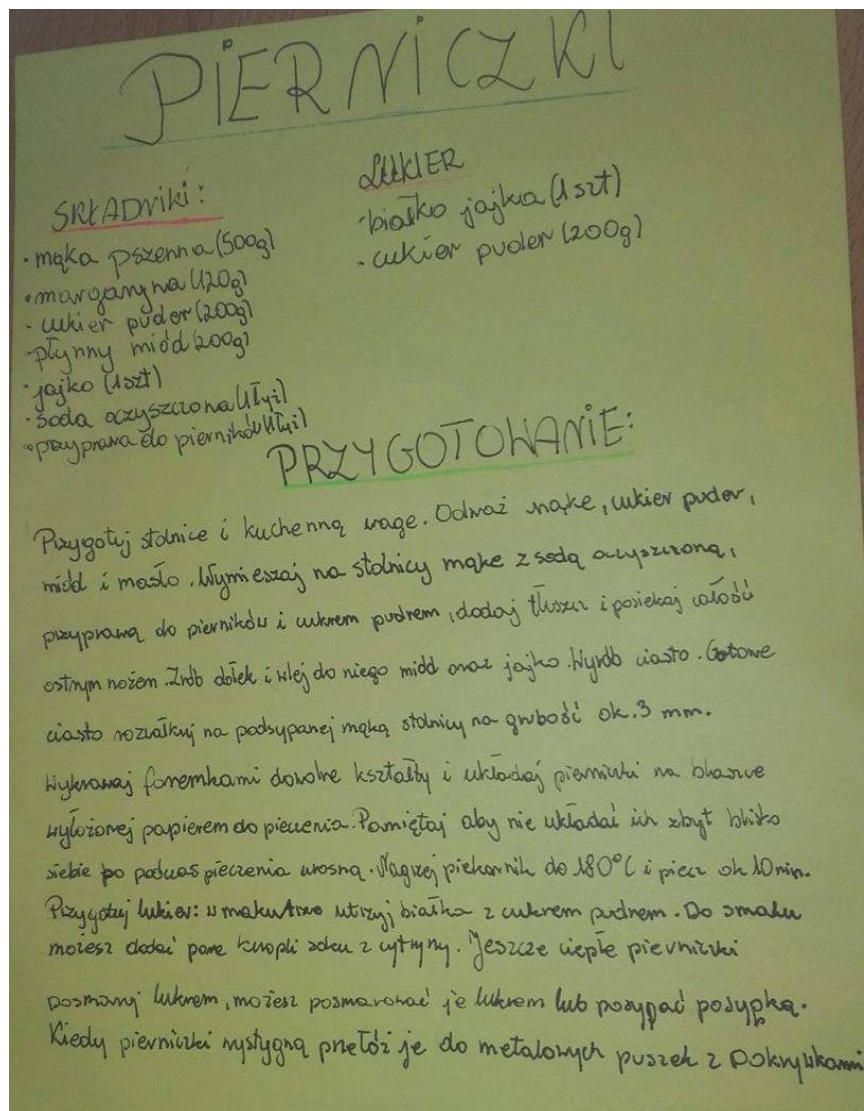 PIERNICZKI
SKŁADNiki:
• mąka pszenna (500g)
• margaryna (120g)
- cukier puder (200g)
• płynny miód (200g)
• jajko (1szt)
• soda oczyszczona (1łyż)
• przyprawa do pierników (1łyż)
LUKIER
• białko jajka (1szt)
• cukier puder (200g)
PRZYGOTOWANiE:
Przygotuj stolnice i kuchenną wage. Odważ mąke, cukier puder,
miód i masło. Wymieszaj na stolnicy mąke z sodą oczyszczoną,
przyprawą do pierników i cukrem pudrem, dodaj tłuszcz i posiekaj całość
ostrym nożem. Zrób dołek i wlej do niego miód oraz jajko. Wyrób ciasto. Gotowe
ciasto rozwałkuj na podsypanej mąką stolnicy na grubość ok. 3 mm.
Wykrawaj foremkami dowolne kształty i układaj pierniczki na blaszce
wyłożonej papierem do pieczenia. Pamiętaj aby nie układać ich zbyt blisko
siebie bo podczas pieczenia urosną. Nagrzej piekarnik do 180°C i piecz ok 10 min.
Przygotuj lukier: w makutrze utrzyj białka z cukrem pudrem. Do smaku
możesz dodać pare kropli soku z cytryny. Jeszcze ciepłe pierniczki
posmaruj lukrem, możesz posmarować je lukrem lub posypać posypką.
Kiedy pierniczki wystygną przełóż je do metalowych puszek z pokrywkami